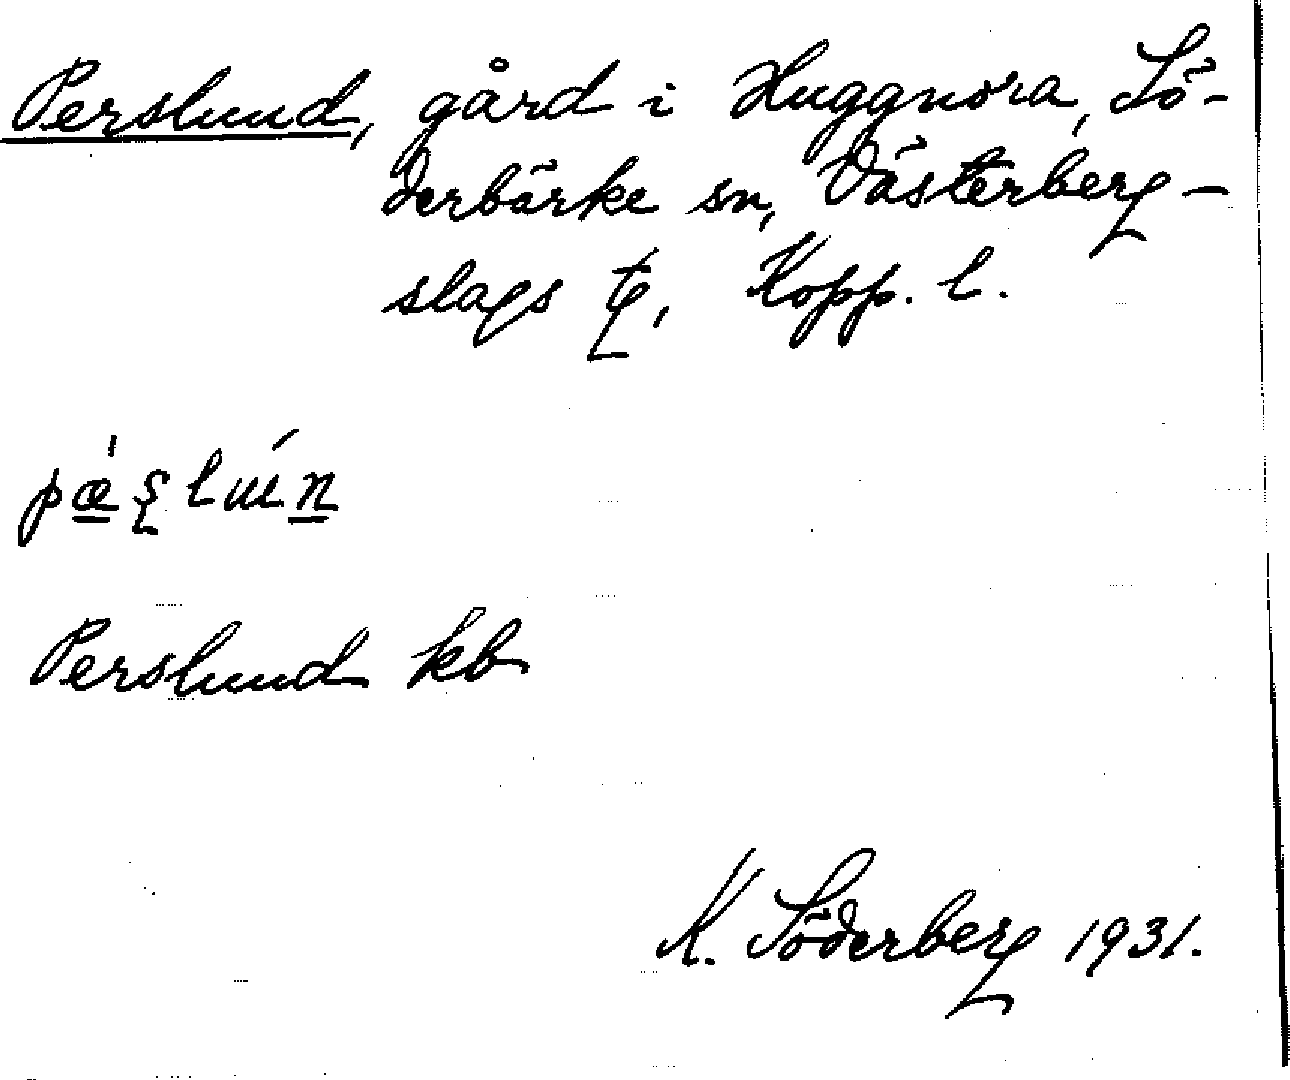 Perslund, gård i Huggnora, Sö-
derbärke sn, Västerberg-
slags tg, Kopp. l.
Perslund kb
K. Söderberg 1931.